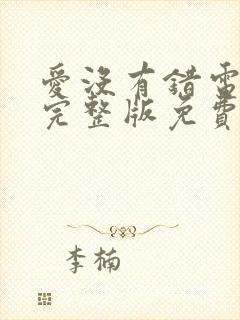 愛沒有錯雷
完整版免費
李楠